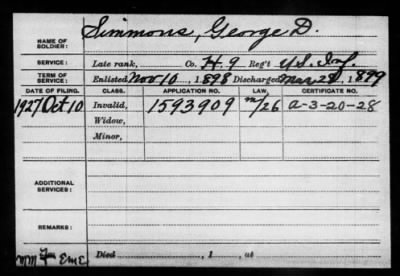 NAME OF SOLDIER: Simmons, George D.
SERVICE: Late rank, Co. H. 9 Reg't U.S. Inf.
TERM OF SERVICE: Enlisted Nov 10, 1898 Discharged Mar 28, 1899
DATE OF FILING. CLASS. APPLICATION NO. LAW. CERTIFICATE NO.
1927 Oct 10 Invalid, 1593909 a-3-20-28
Widow,
Minor,
ADDITIONAL SERVICES:
REMARKS:
Died , 1 , at